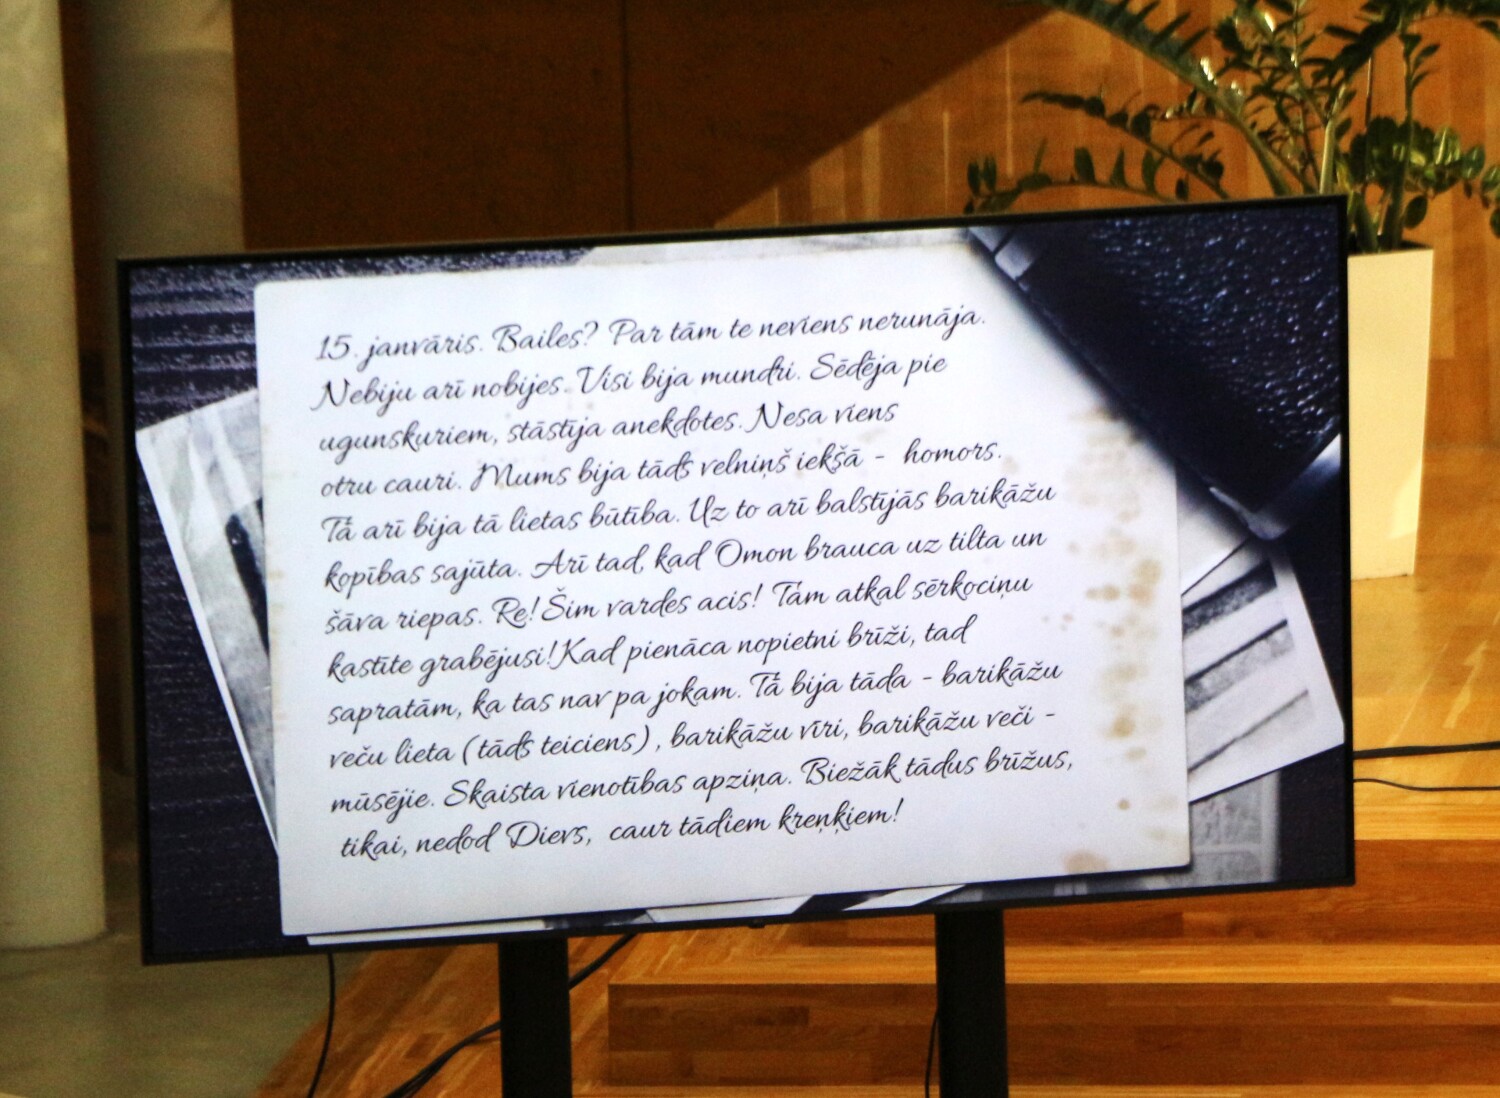 15. janvāris. Bailes? Par tām te neviens nerunāja.
Nebiju arī nobijes. Visi bija mundri. Sēdēja pie
ugunskuriem, stāstīja anekdotes. Nesa viens
otru cauri. Mums bija tāds velniņš iekšā - homors.
Tā arī bija tā lietas būtība. Uz to arī balstījās barikāžu
kopības sajūta. Arī tad, kad Omon brauca uz tilta un
šāva riepas. Re! Šim vardes acis! Tam atkal sērkociņu
kastīte grabējusi! Kad pienāca nopietni brīži, tad
sapratām, ka tas nav pa jokam. Tā bija tāda - barikāžu
veču lieta (tāds teiciens), barikāžu vīri, barikāžu veči -
mūsējie. Skaista vienotības apziņa. Biežāk tādus brīžus,
tikai, nedod Dievs, caur tādiem kreņķiem!